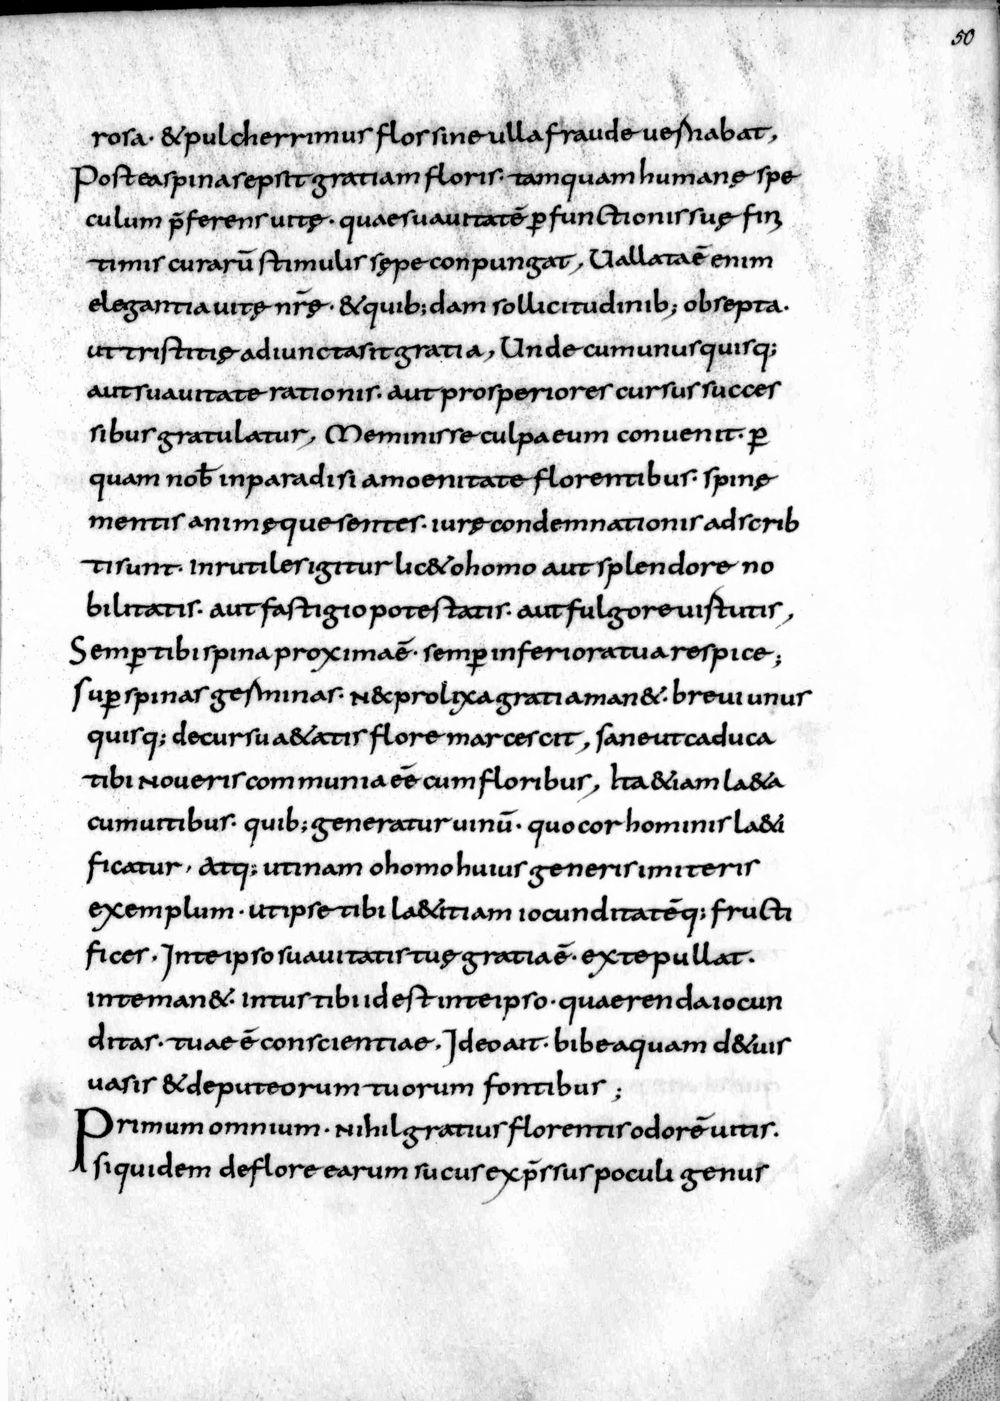 50
rosa· & pulcherrimus flos sine ulla fraude uernabat,
Postea spina sepsit gratiam floris· tamquam humanę spe
culum p̄ferens uitę· quae suauitatē ꝑfunctionis suę finı
timis curarū stimulis sępe conpungat, Uallata ē enim
elegantia uitę nr̄ę· & quib;dam sollicitudinib; obsepta·
ut tristitię adiuncta sit gratia, Unde cum unusquisq;
aut suauitate rationis· aut prosperiores cursus succes
sibus gratulatur, Meminisse culpae eum conuenit· ꝑ
quam nob̄ in paradisi amoenitate florentibus· spinę
mentis animęque sentes· iurę condemnationis adscrib
ti sunt· Inrutiles igitur lic& o homo aut splendore no
bilitatis· aut fastigio potestatis· aut fulgore uirtutis,
Semꝑ tibi spina proxima ē· semꝑ inferiora tua respice;
suꝑ spinas germinas· N& prolixa gratia man&· breui unus
quisq; decursu a&atis flore marcescit, sane ut caduca
tibi Noueris communia eē cum floribus, Ita &iam la&a
cum uitibus· quib; generatur uinū· quo cor hominis la&i
ficatur, Atq; utinam o homo huius generis imiteris
exemplum· ut ipse tibi la&itiam iocunditatēq; fructi
fices, In te ipso suauitatis tuę gratia ē· ex te pullat·
in te man&· intus tibi id est in te ipso· quaerenda iocun
ditas· tuae ē conscientiae, Ideo ait· bibe aquam d& uis
uasis & de puteorum tuorum fontibus ;
Primum omnium· Nihil gratius florentis odore ē uitis·
siquidem de flore earum sucus exp̄ssus poculi genus